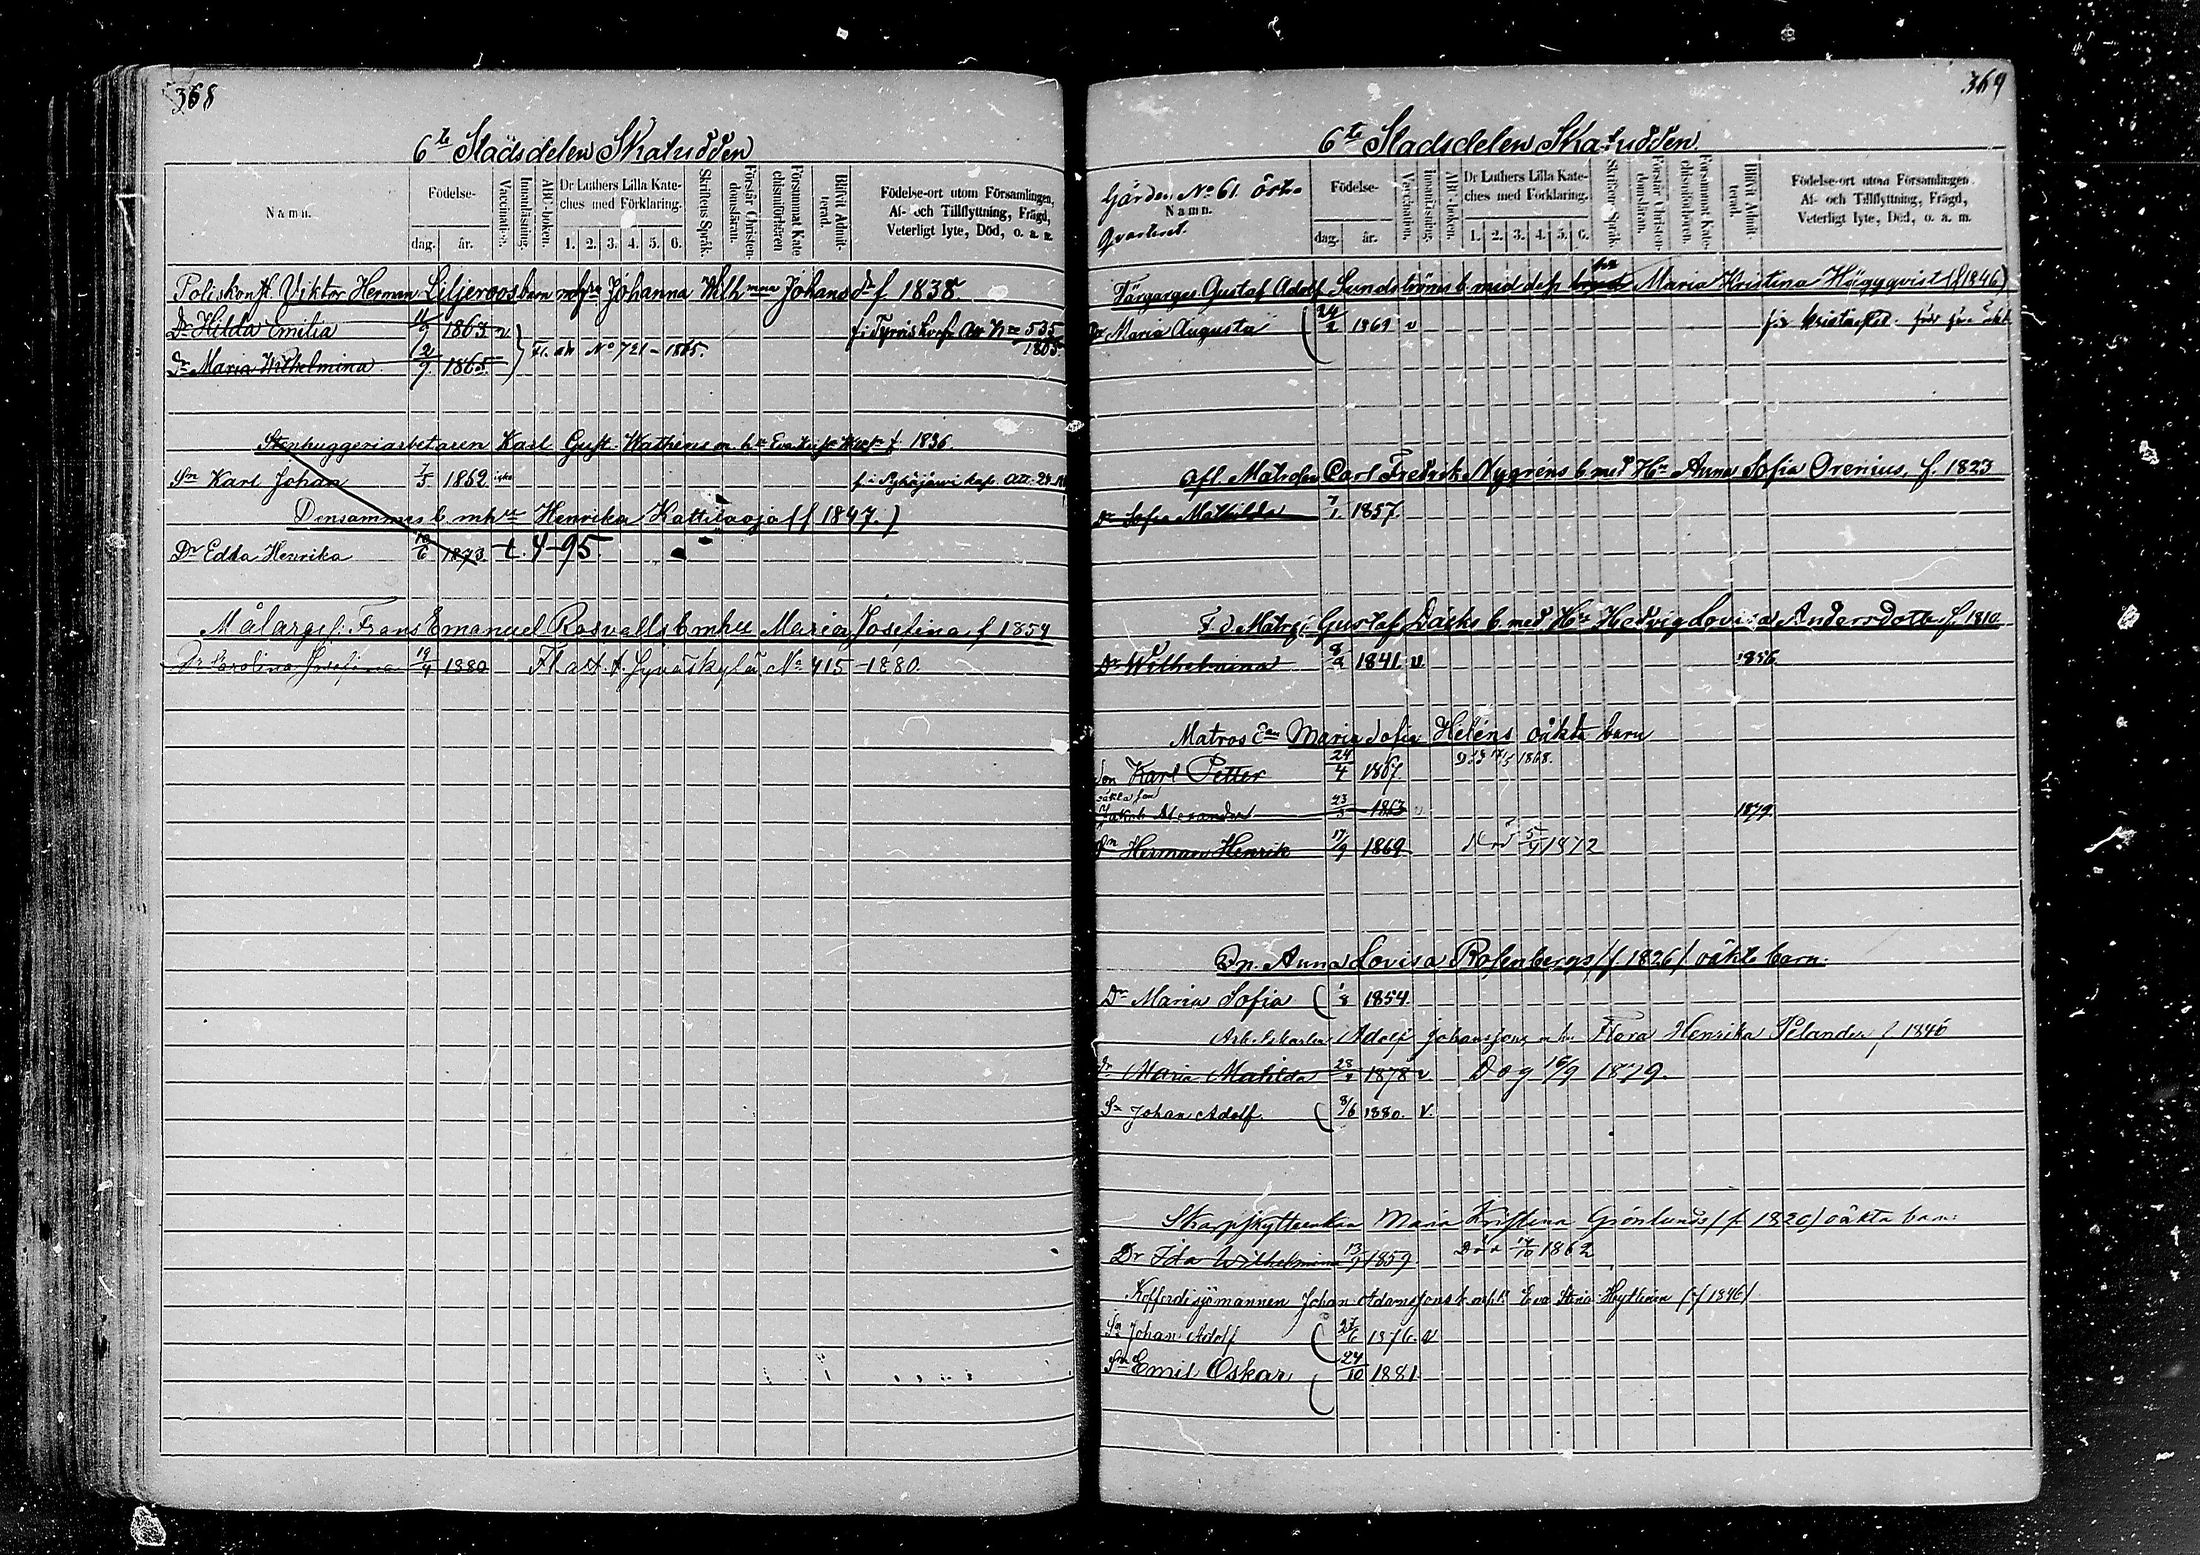 368
6te Stadsdelen Skatudden
Namn.
Födelse-
dag.
år.
Vaccinati-n.
Innanläsning.
ABC-boken.
Dr Luthers Lilla Kate-
ches med Förklaring.
1. 2. 3. 4. 5. 6.
Skriftens Språk.
Förstår Christen-
domsläran.
Försummat Kate
chismiförhören
Blifvit Admit-
terad.
Födelse-ort utom Församlingen,
Af- och Tillflyttning, Frägd,
Veterligt lyte, Död, o. a. m.
Poliskonst. Viktor Herman Liljeroos barn Johanna Johans dr f 1838
Dr Hilda Emilia 1863 v
Dr Maria Wilhelmina 2/9 1865 Fl. att No 721 - 1865.
Stenhuggeriarbetaren Karl Gust. f. 1836
Sn Karl Johan 7/5 1862
Densammes b. mhu Henrika Kattilaoja (f 1847.)
Dr Edda Henrika 10/6 1873 t. 4-95
Målargef. Frans Emanuel Rosvalls b mhu Maria Josefina f 1854
Dr Carolina Josefina 19/4 1880 Fl att. t. Jyväskylä No 415 - 1880.
369
6te Stadsdelen Skatudden
Gården No 61
Namn.
Qvarteret.
Födelse-
dag.
år.
Vaccination.
Innanläsning.
ABC-boken.
Dr Luthers Lilla Kate-
ches med Förklaring.
1. 2. 3. 4. 5. 6.
Skriftens Språk.
Förstår Christen-
domsläran.
Försummat Kate-
chismiförhören.
Blifvit Admit-
terad.
Födelse-ort utom Församlingen
Af- och Tillflyttning, Frägd,
Veterligt lyte, Död, o. a. m.
Färgarges Gustaf Adolf Sundströms b. med dess Maria Kristina Häggqvist (f 1846)
Dr Maria Augusta 24/2 1869 v
Afl. Matrosen Carl Fredrik Nygréns b med Hu Anna Sofia Orenius, f. 1823
Dr Sofia Mathilda 7/1 1857.
F d Matrosen Gustaf b med Hu Hedvig Lovisa Andersdotter f. 1810
Dr Wilhelmina 1841. v. 1856
Matros Ean Maria Sofia Heléns oäkta barn
Son Karl Petter 24/4 1867. Död 1868.
oäkta son
Jakob Alexander 23/3 1863 1879
Sn Herman Henrik 17/9 1869 Död 1872
Anna Lovisa Rosenbergs (f 1826) oäkta barn.
Dr Maria Sofia 1/8 1854.
Arb. karlen Adolf Johanssons m hu Flora Henrika Pelander f 1846
Dr Maria Matilda 1878 v Dog 16/9 1879.
Sn Johan Adolf 8/6 1880. v.
Skarpskytteenkan Maria Kristina Grönlunds (f. 1826) oäkta barn:
Dr Ida Wilhelmina 1859. Död 1862
Kofferdisjömannen Johan Adamssons b. mhu Eva Stina (f 1846)
Sn Johan Adolf 1876. v
Sn Emil Oskar 24/10 1881